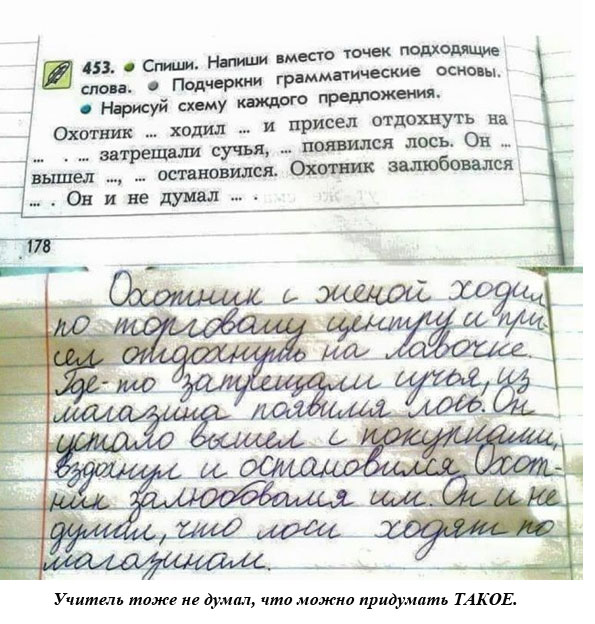 453. Спиши. Напиши вместо точек подходящие
слова. Подчеркни грамматические основы.
Нарисуй схему каждого предложения.
Охотник ... ходил ... и присел отдохнуть на
... . ... затрещали сучья, ... появился лось. Он ...
вышел ..., ... остановился. Охотник залюбовался
... . Он и не думал ... .
178
Охотник с женой ходил
по торговому центру и при-
сел отдохнуть на лавочке.
Где-то затрещали сучья, из
магазина появился лось. Он
устало вышел с покупками,
вздохнул и остановился Охот-
ник залюбовался им. Он и не
думал, что лоси ходят по
магазинам.
Учитель тоже не думал, что можно придумать ТАКОЕ.